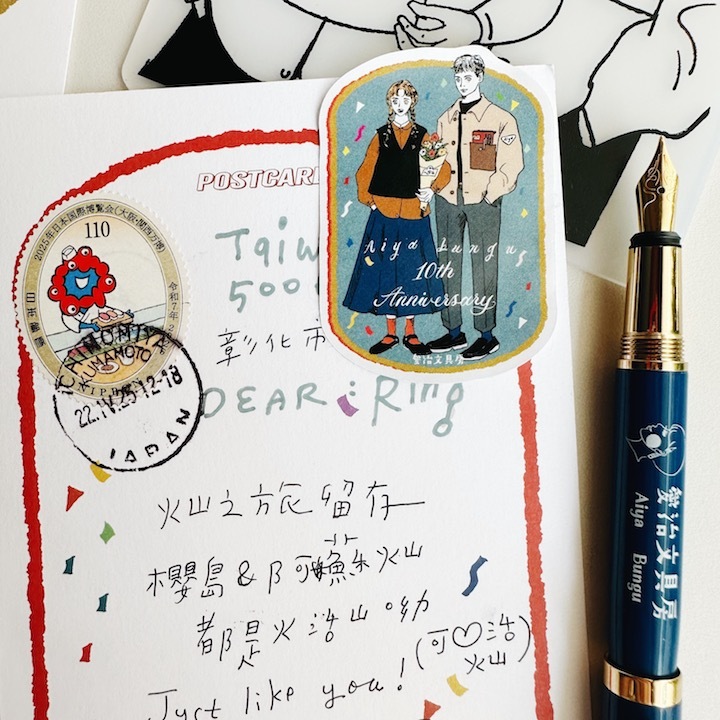 POSTCAR
2025年日本国際博覧会(大阪・関西万博)
110
日本郵便
令和7年
KUMAMOTO
22.IV.25 12-18
JAPAN
Taiw
500
彰化市
DEAR : Ring
火山之旅留存
櫻島&阿蘇火山
都是火活山呦
(可♡活
火山)
Just like you!
Aiya Bungu
10th
Anniversary
愛治文具房
愛治文具房
Aiya Bungu